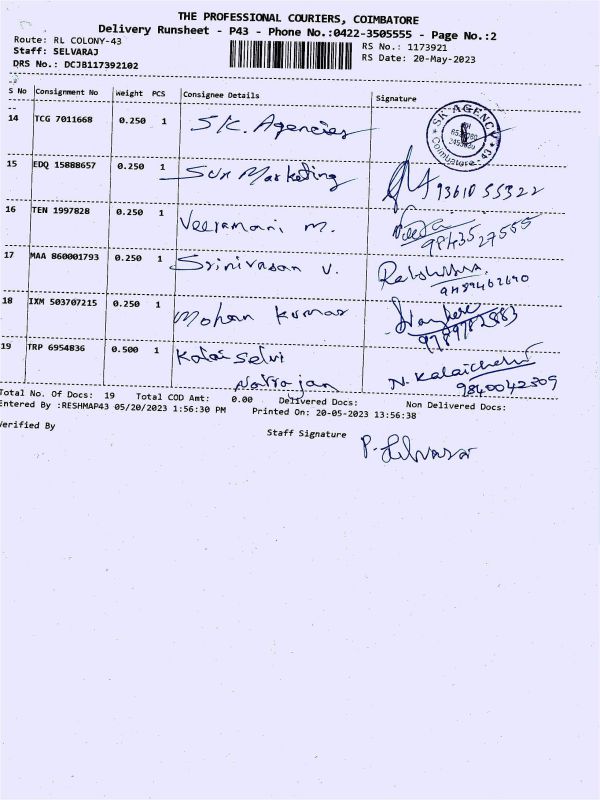 THE PROFESSIONAL COURIERS, COIMBATORE
Delivery Runsheet - P43 - Phone No.:0422-3505555 - Page No.:2
Route: RL COLONY-43
RS No.: 1173921
Staff: SELVARAJ
RS Date: 20-May-2023
DRS No.: DCJB117392102
S No Consignment No Weight PCS Consignee Details Signature
14 TCG 7011668 0.250 1 S.K. Agencies
SK AGENCY
Coimbatore - 43
15 EDQ 15888657 0.250 1 Sun Marketing 93610 55322
16 TEN 1997828 0.250 1 Veeramani M. Veera
9843527555
17 MAA 860001793 0.250 1 Srinivasan V.
18 IXM 503707215 0.250 1 Mohan Kumar
9789782883
19 TRP 6954836 0.500 1 Kalai Selvi
Natrajan N. Kalaichelvi
9840042309
Total No. Of Docs: 19 Total COD Amt: 0.00 Delivered Docs: Non Delivered Docs:
Entered By :RESHMAP43 05/20/2023 1:56:30 PM Printed On: 20-05-2023 13:56:38
Verified By
Staff Signature